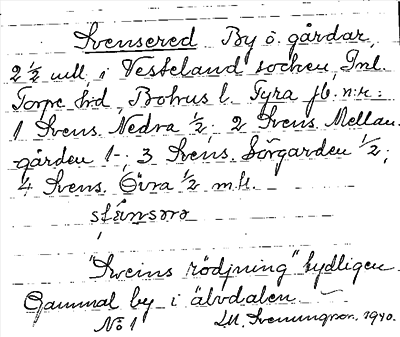 Svensered By o. gårdar,
2 ½ mtl. i Vesteland socken, Inl.
Torpe hrd, Bohus l. Fyra jb. n:r:
1 Svens. Nedra ½; 2 Svens. Mellan-
gården 1-; 3 Svens. Sörgarden ½;
4 Svens. Övra ½ m.fl.
"Sveins rödjning" tydligen
Gammal by i älvdalen
No 1 J.M. Svenungson. 1940.